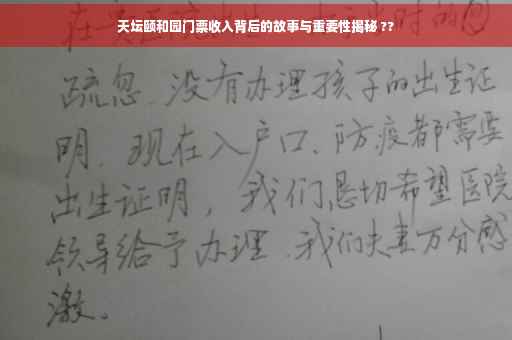 天坛颐和园门票收入背后的故事与重要性揭秘 ??
疏忽、没有办理孩子的出生证
明、现在入户口、防疫都需要
出生证明，我们恳切希望医院
领导给予办理、我们夫妻万分感
激。